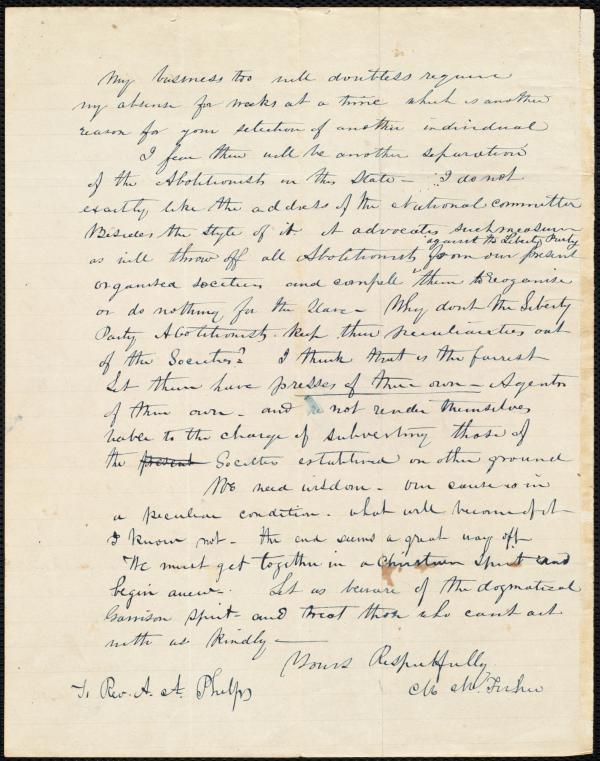 My business too will doubtless require
my absense for weeks at a time which is another
reason for your selection of another individual
I fear there will be another separation
of the Abolitionists in this State - I do not
exactly like the address of the National committee
Besides the style of it it advocates such measures
as will throw off all Abolitionists against the Liberty Party from our present
organised societies and compell them to reoganise
or do nothing for the slave - Why dont the Liberty
Party Abolitionists keep their peculiarities out
of the Societies? I think that is the fairest
Let them have presses of their own - Agents
of their own - and not render themselves
liable to the charge of subverting those of
the present Societies established on other ground
We need wisdom - our cause is in
a peculiar condition - what will become of it
I know not - the end seems a great way off
We must get together in a Christian Spirit and
begin anew - Let us beware of the dogmatical
Garrison Spirit - and treat those who cant act
with us kindly -
Yours Respectfully
To Rev. A. A. Phelps
M. M. Fisher